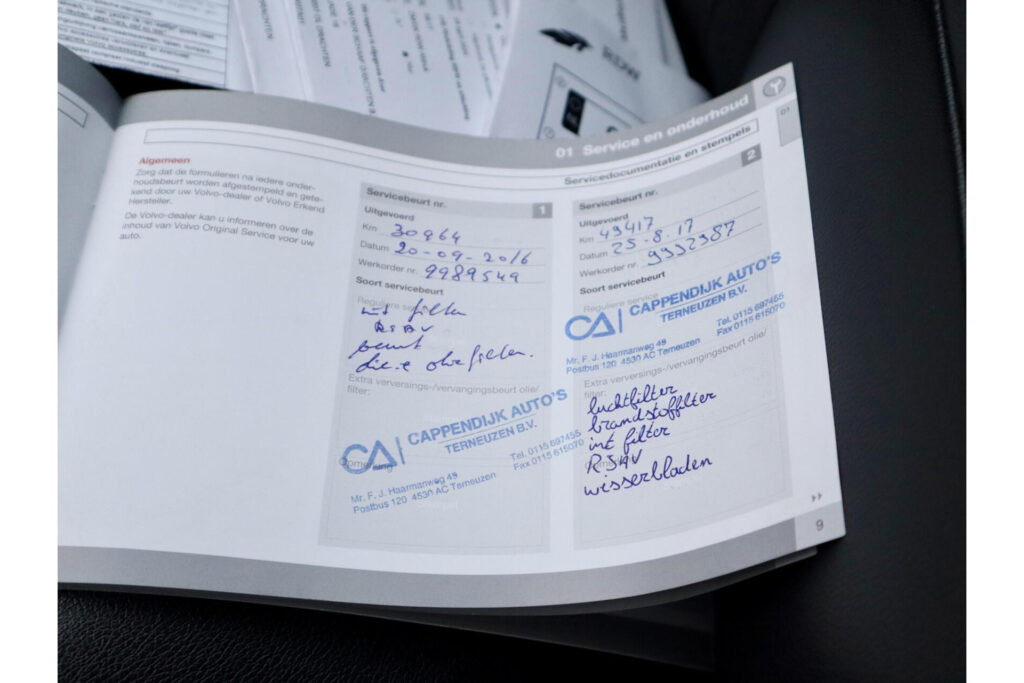 01 Service en onderhoud
Servicedocumentatie en stempels
01
Algemeen
Zorg dat de formulieren na iedere onder-
houdsbeurt worden afgestempeld en gete-
kend door uw Volvo-dealer of Volvo Erkend
Hersteller.
De Volvo-dealer kan u informeren over de
inhoud van Volvo Original Service voor uw
auto.
Servicebeurt nr.
1
Uitgevoerd
Km 30964
Datum 20-09-2016
Werkorder nr. 9989549
Soort servicebeurt
Reguliere service
int filter
RSAV
beurt
olie e oliefilter.
Extra verversings-/vervangingsbeurt olie/
filter:
CA CAPPENDIJK AUTO'S
TERNEUZEN B.V.
Mr. F. J. Haarmanweg 49
Postbus 120 4530 AC Terneuzen
Tel. 0115 697455
Fax 0115 615070
Servicebeurt nr.
2
Uitgevoerd
Km 49417
Datum 25-8-17
Werkorder nr. 9992387
Soort servicebeurt
Reguliere service
CA CAPPENDIJK AUTO'S
TERNEUZEN B.V.
Mr. F. J. Haarmanweg 49
Postbus 120 4530 AC Terneuzen
Tel. 0115 697455
Fax 0115 615070
Extra verversings-/vervangingsbeurt olie/
filter:
luchtfilter
brandstoffilter
int filter
RSAV
wisserbladen
9